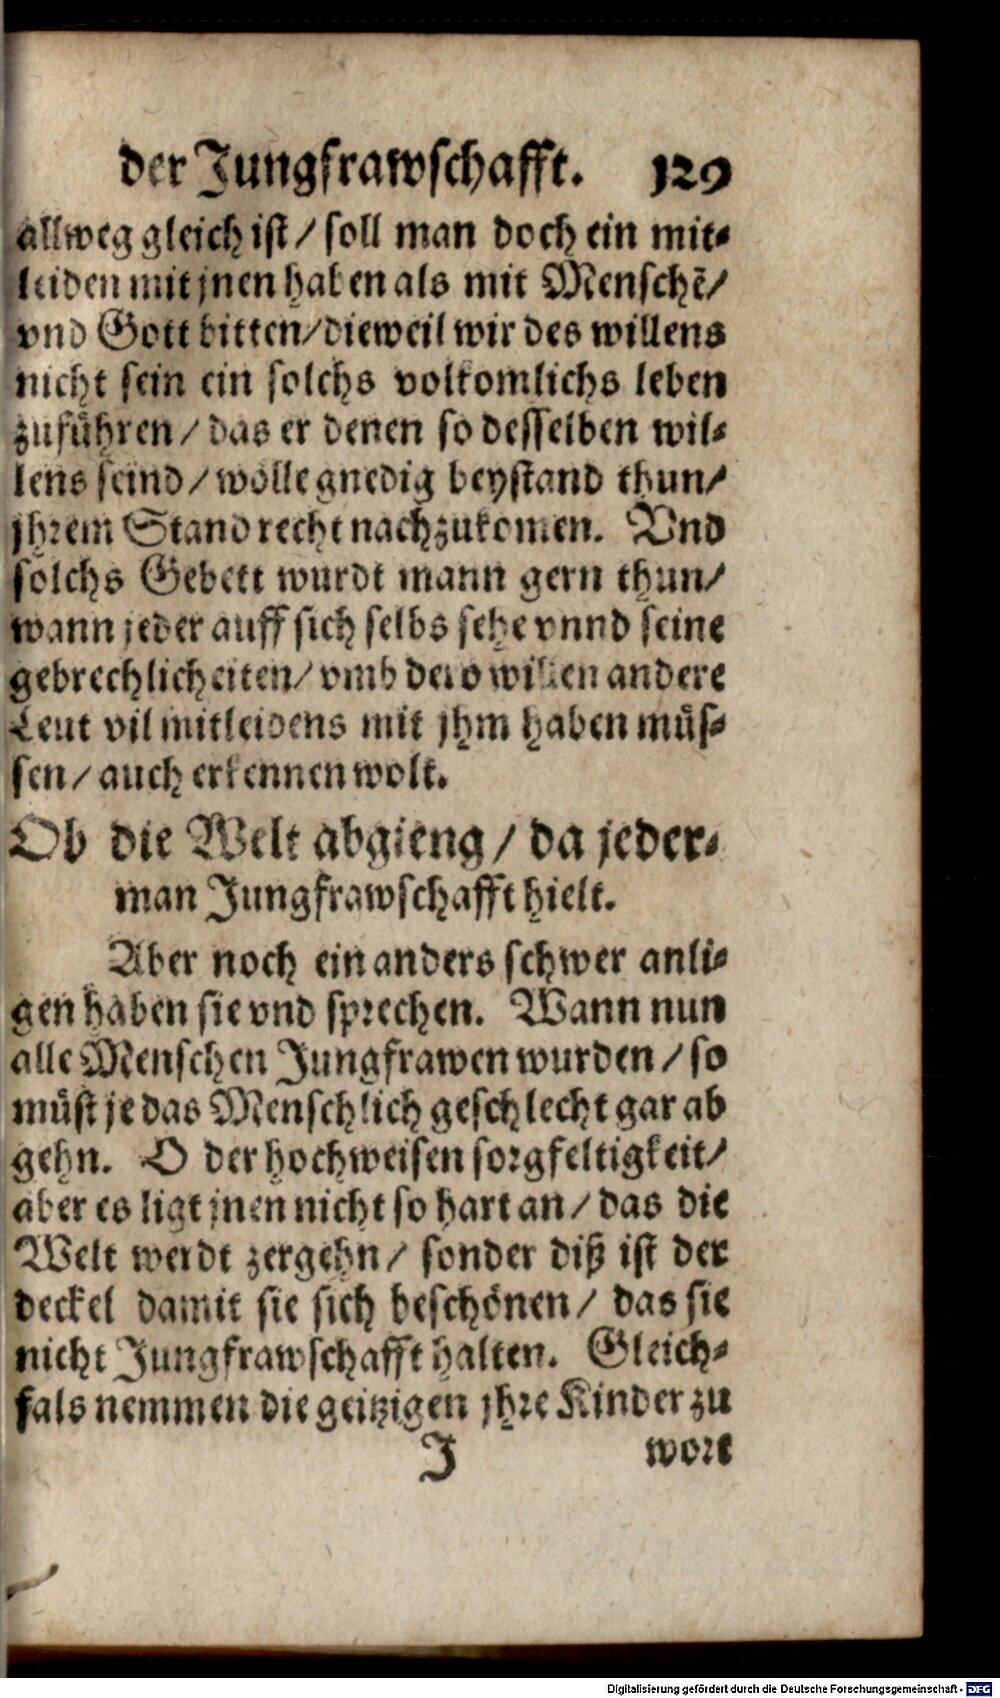 der Jungfrawschafft. 129
allweg gleich ist / soll man doch ein mit-
leiden mit jnen haben als mit Menschē /
vnd Gott bitten / dieweil wir des willens
nicht sein ein solchs volkomlichs leben
zuführen / das er denen so desselben wil-
lens seind / wölle gnedig beystand thun /
jhrem Stand recht nachzukomen. Vnd
sölchs Gebett wurdt mann gern thun /
wann jeder auff sich selbs sehe vnnd seine
gebrechlicheiten / vmb dero willen andere
Leut vil mitleidens mit jhm haben müs-
sen / auch erkennen wolt.
Ob die Welt abgieng / da jeder-
man Jungfrawschafft hielt.
Aber noch ein anders schwer anli-
gen haben sie vnd sprechen. Wann nun
alle Menschen Jungfrawen wurden / so
müst je das Menschlich geschlecht gar ab
gehn. O der hochweisen sorgfeltigkeit /
aber es ligt jnen nicht so hart an / das die
Welt werdt zergehn / sonder diß ist der
deckel damit sie sich beschönen / das sie
nicht Jungfrawschafft halten. Gleich-
fals nemmen die geitzigen jhre Kinder zu
J wort
Digitalisierung gefördert durch die Deutsche Forschungsgemeinschaft - DFG